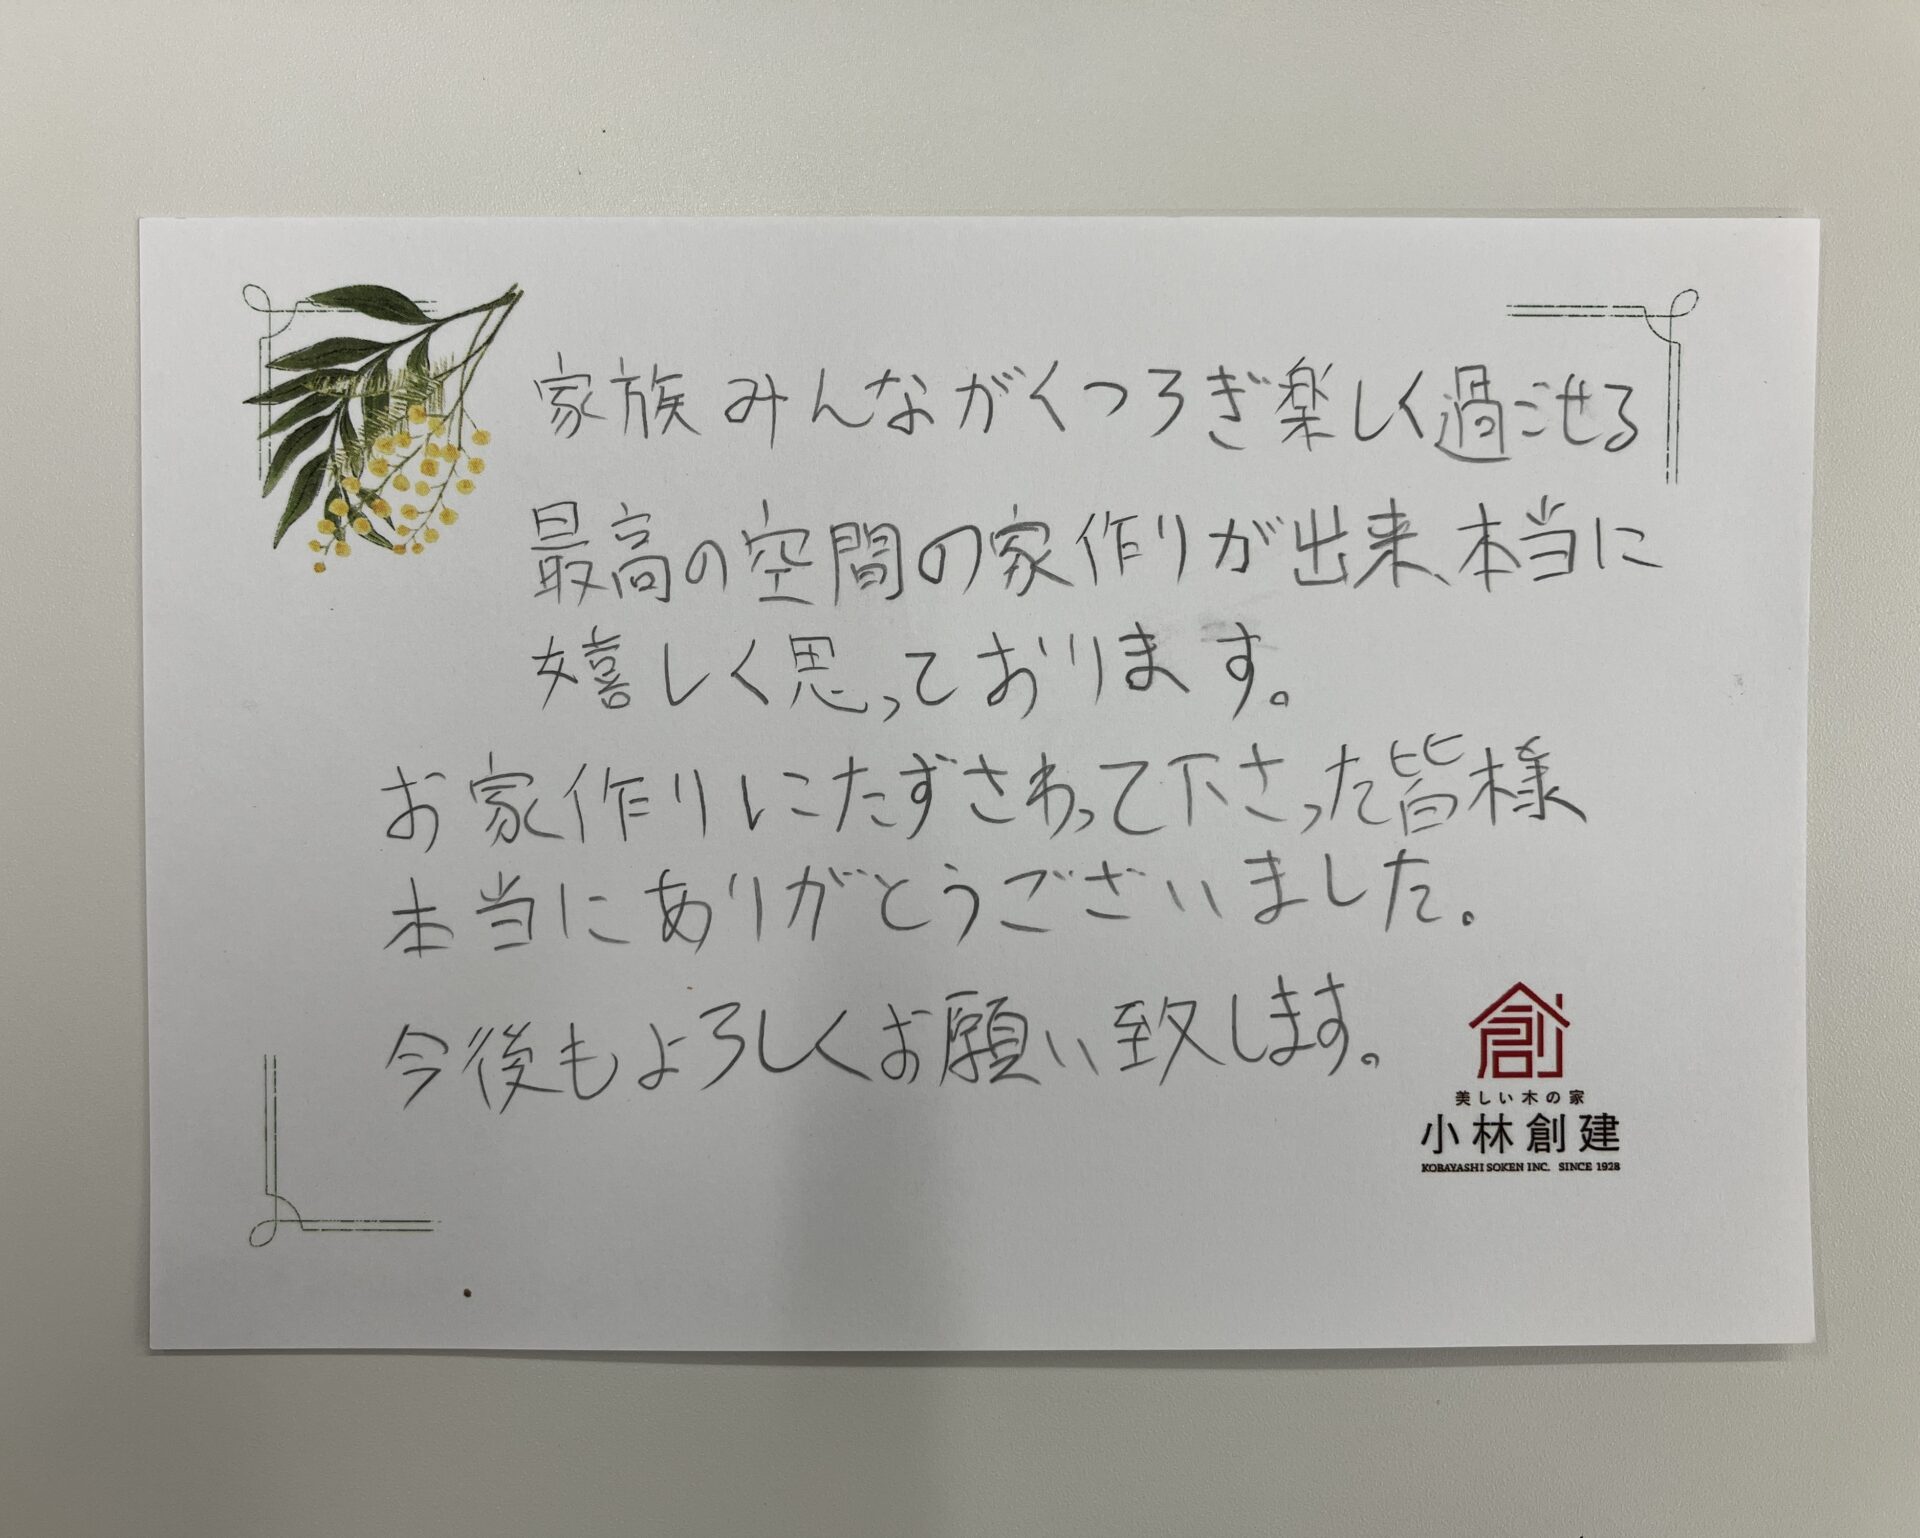 家族みんながくつろぎ楽しく過ごせる
最高の空間の家作りが出来、本当に
嬉しく思っております。
お家作りにたずさわって下さった皆様
本当にありがとうございました。
今後もよろしくお願い致します。
創
美しい木の家
小林創建
KOBAYASHI SOKEN INC. SINCE 1928